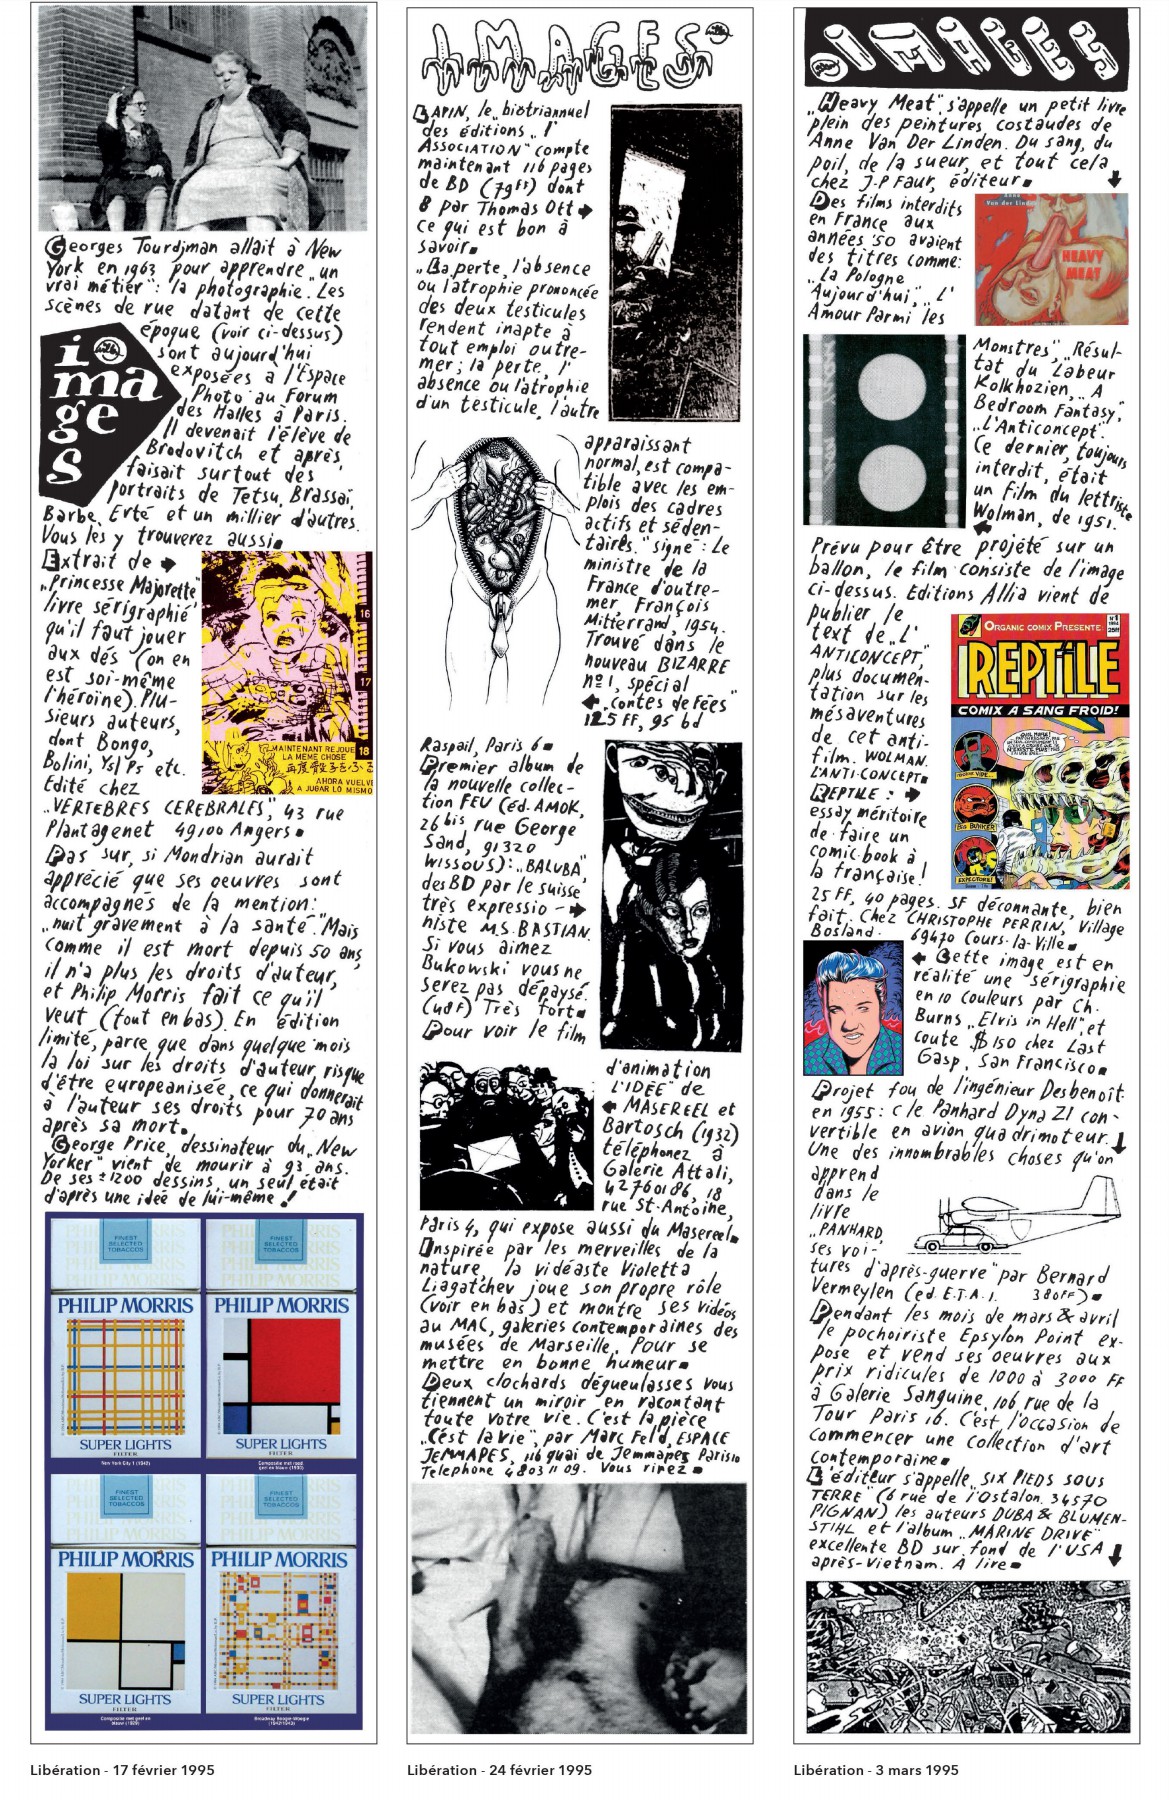 Georges Tourdjman allait à New
York en 1963 pour apprendre „un
vrai métier": la photographie. Les
scènes de rue datant de cette
époque (voir ci-dessus)
sont aujourd'hui
exposées à l'Espace
Photo au Forum
des Halles à Paris.
Il devenait l'élève de
Brodovitch et après,
faisait surtout des
portraits de Tetsu, Brassaï,
Barbe, Erté et un millier d'autres.
Vous les y trouverez aussi
images
willem
Extrait de
„Princesse Majorette"
livre sérigraphié
qu'il faut jouer
aux dés (on en
est soi-même
l'héroïne). Plu-
sieurs auteurs,
dont Bongo,
Bolini, Ysl Ps etc.
Edité chez
„VERTEBRES CEREBRALES", 43 rue
Plantagenet 49100 Angers
16
17
18
MAINTENANT REJOUE
LA MEME CHOSE
AHORA VUELVE
A JUGAR LO MISMO
Pas sur, si Mondrian aurait
apprécié que ses oeuvres sont
accompagnés de la mention:
„nuit gravement à la santé". Mais
comme il est mort depuis 50 ans,
il n'a plus les droits d'auteur,
et Philip Morris fait ce qu'il
veut (tout en bas). En édition
limité, parce que dans quelque mois
la loi sur les droits d'auteur risque
d'être europeanisée, ce qui donnerait
à l'auteur ses droits pour 70 ans
après sa mort.
George Price, dessinateur du „New
Yorker" vient de mourir à 93 ans.
De ses ±1200 dessins, un seul était
d'après une idée de lui-même!
PHILIP MORRIS
FINEST
SELECTED
TOBACCOS
PHILIP MORRIS
SUPER LIGHTS
FILTER
New York City 1 (1942)
PHILIP MORRIS
FINEST
SELECTED
TOBACCOS
PHILIP MORRIS
SUPER LIGHTS
Compositie met rood,
geel en blauw (1930)
PHILIP MORRIS
FINEST
SELECTED
TOBACCOS
PHILIP MORRIS
SUPER LIGHTS
FILTER
Compositie met geel en
blauw (1929)
PHILIP MORRIS
FINEST
SELECTED
TOBACCOS
PHILIP MORRIS
SUPER LIGHTS
FILTER
Broadway Boogie-Woogie
(1942/1943)
Libération - 17 février 1995
IMAGES
LAPIN, le „biotriannuel
des éditions „l'
ASSOCIATION" compte
maintenant 116 pages
de BD (79ff) dont
8 par Thomas Ott
ce qui est bon à
savoir
„La perte, l'absence
ou l'atrophie prononcée
des deux testicules
rendent inapte à
tout emploi outre-
mer; la perte, l'
absence ou l'atrophie
d'un testicule, l'autre
apparaissant
normal, est compa-
tible avec les em-
plois des cadres
actifs et séden-
taires." signé: Le
ministre de la
France d'outre-
mer, François
Mitterrand, 1954.
Trouvé dans le
nouveau BIZARRE
nº1, spécial
„contes de Fées"
125 FF, 95 bd
Raspail, Paris 6
Premier album de
la nouvelle collec-
tion FEU (éd. AMOK,
26 bis rue George
Sand, 91320
WISSOUS): „BALUBA",
des BD par le suisse
très expressio-
niste M.S. BASTIAN.
Si vous aimez
Bukowski vous ne
serez pas dépaysé.
(48F) Très fort
Pour voir le film
d'animation
L'IDÉE" de
MASEREEL et
Bartosch (1932)
téléphonez à
Galerie Attali,
42760186, 18
rue St-Antoine,
Paris 4, qui expose aussi du Masereel
Inspirée par les merveilles de la
nature, la vidéaste Violetta
Liagatchev joue son propre rôle
(voir en bas) et montre ses vidéos
au MAC, galeries contemporaines des
musées de Marseille. Pour se
mettre en bonne humeur
Deux clochards dégueulasses vous
tiennent un miroir en racontant
toute votre vie. C'est la pièce
„C'est la vie", par Marc Feld, ESPACE
JEMMAPES, 116 quai de Jemmapes Paris 10
Telephone 48031109. Vous rirez
Libération - 24 février 1995
IMAGES
„Heavy Meat" s'appelle un petit livre
plein des peintures costaudes de
Anne Van Der Linden. Du sang, du
poil, de la sueur, et tout cela
chez J-P Faur, éditeur
Van der Linden
HEAVY
MEAT
Des films interdits
en France aux
années '50 avaient
des titres comme:
„La Pologne
Aujourd'hui", „L'
Amour Parmi les
Monstres", „Résul-
tat du Labeur
Kolkhozien", „A
Bedroom Fantasy",
„L'Anticoncept".
Ce dernier, toujours
interdit, était
un film du lettriste
Wolman, de 1951.
Prévu pour être projété sur un
ballon, le film consiste de l'image
ci-dessus. Editions Allia vient de
publier le
text de „L'
ANTICONCEPT",
plus documen-
tation sur les
mésaventures
de cet anti-
film. WOLMAN.
L'ANTI-CONCEPT
ORGANIC COMIX PRESENTE:
N°1
1994
25ff
REPTILE
COMIX A SANG FROID!
BIG BUNKER
EXPECTORE!
REPTILE:
essay méritoire
de faire un
comic-book à
la française!
25 FF, 40 pages. SF déconnante, bien
fait. Chez CHRISTOPHE PERRIN, Village
Bosland. 69470 Cours-la-Ville
Cette image est en
réalité une sérigraphie
en 10 couleurs par Ch.
Burns „Elvis in Hell", et
coute $150 chez Last
Gasp, San Francisco
Projet fou de l'ingénieur Desbenoît
en 1955: c le Panhard Dyna Z1 con-
vertible en avion quadrimoteur.
Une des innombrables choses qu'on
apprend
dans le
livre
„PANHARD,
ses voi-
tures d'après-guerre" par Bernard
Vermeylen (ed. E.T.A.I. 380FF)
Pendant les mois de mars & avril
le pochoiriste Epsylon Point ex-
pose et vend ses oeuvres aux
prix ridicules de 1000 à 3000 FF
à Galerie Sanguine, 106 rue de la
Tour Paris 16. C'est l'occasion de
commencer une collection d'art
contemporaine
L'éditeur s'appelle „SIX PIEDS SOUS
TERRE" (6 rue de l'Ostalon. 34570
PIGNAN) les auteurs DUBA & BLUMEN-
STIHL et l'album „MARINE DRIVE"
excellente BD sur fond de l'USA
après-Vietnam. A lire
Libération - 3 mars 1995